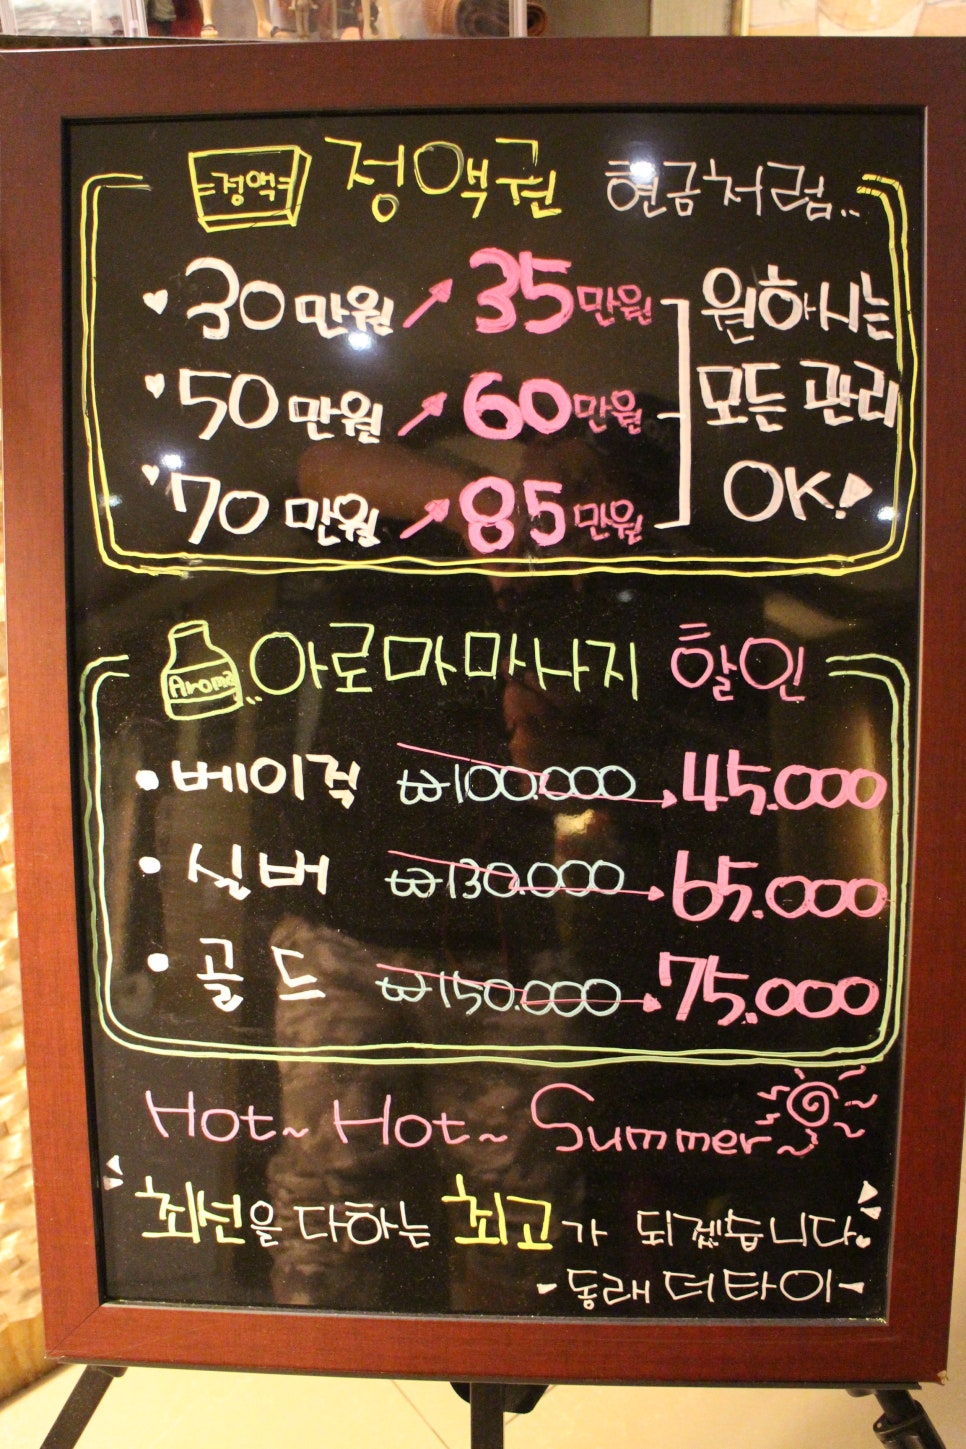 정액 정액권 현금처럼..
30만원 35만원
50만원 60만원
70만원 85만원
원하시는
모든 관리
OK!
Aroma 아로마마사지 할인
베이직 ₩100.000 45.000
실버 ₩130.000 65.000
골드 ₩150.000 75.000
Hot~ Hot~ Summer
최선을 다하는 최고가 되겠습니다.
- 동래 더타이 -